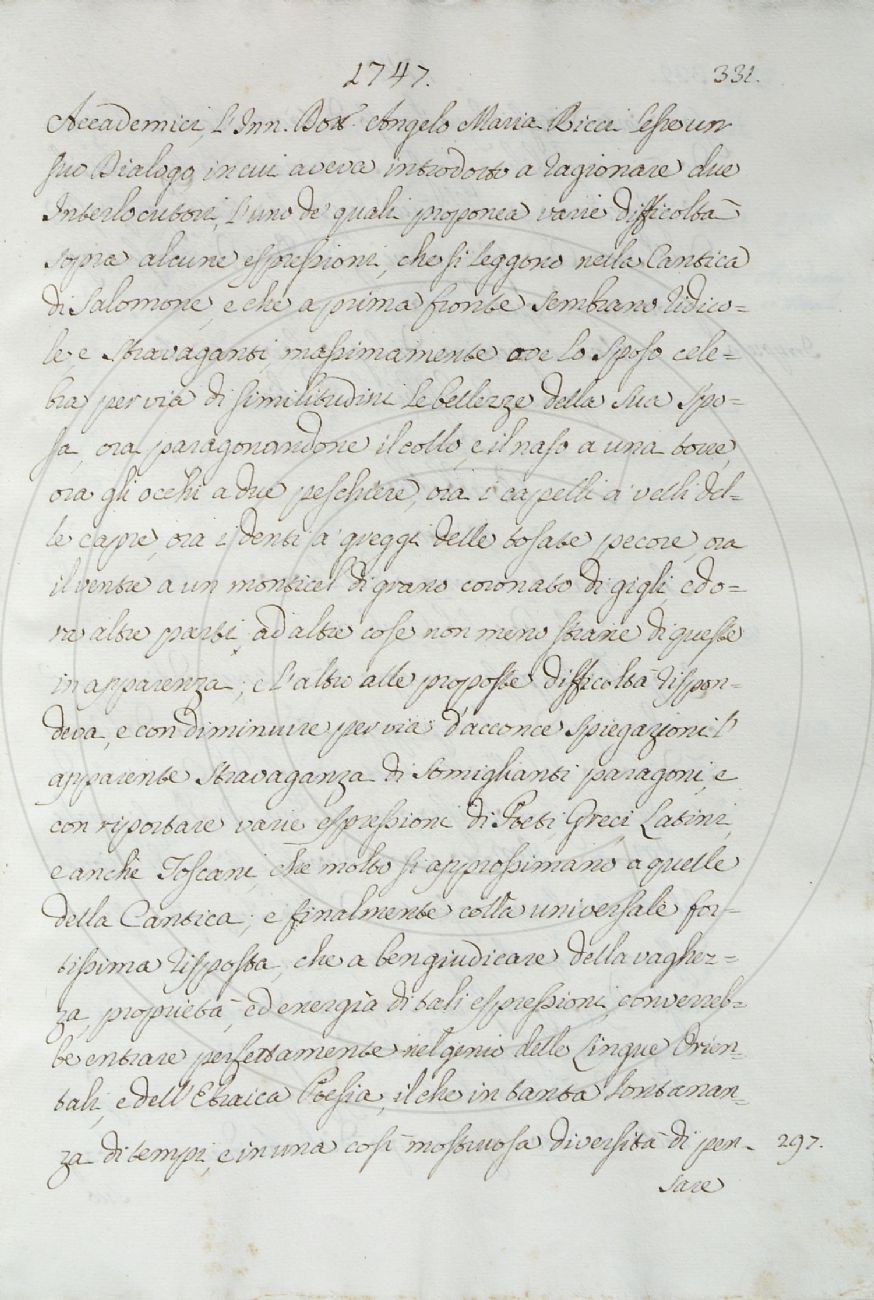 1747.
331.
Accademici, L'Inn. Dott. Angelo Maria Ricci lesse un
suo Dialogo, in cui aveva introdotto a ragionare due
Interlocutori, l'uno de' quali proponea varie difficoltà
sopra alcune espressioni, che si leggono nella Cantica
di Salomone, e che a prima fronte sembrano ridico=
le, e stravaganti, massimamente ove lo Sposo cele=
bra per via di similitudini le bellezze della sua Spo=
sa, ora paragonandone il collo, e il naso a una torre,
ora gli occhi a due peschiere, ora i capelli a' velli del=
le capre, ora i denti a' greggi delle tosate pecore, ora
il ventre a un monticel di grano coronato di gigli, ed o=
ra altre parti, ad altre cose non meno strane di queste
in apparenza; e l'altro alle proposte difficoltà rispon=
deva, e con diminuire per via d'acconce spiegazioni l'
apparente stravaganza di somiglianti paragoni, e
con riportare varie espressioni di Poeti Greci, Latini,
e anche Toscani, che molto si approssimano a quelle
della Cantica; e finalmente colla universale for=
tissima risposta, che a ben giudicare della vaghez=
za, proprietà, ed energìa di tali espressioni, converreb=
be entrare perfettamente nel genio delle Lingue Orien=
tali, e dell'Ebraica Poesia, il che in tanta lontanan=
za di tempi, e in una così mostruosa diversità di pen=
297.
sare